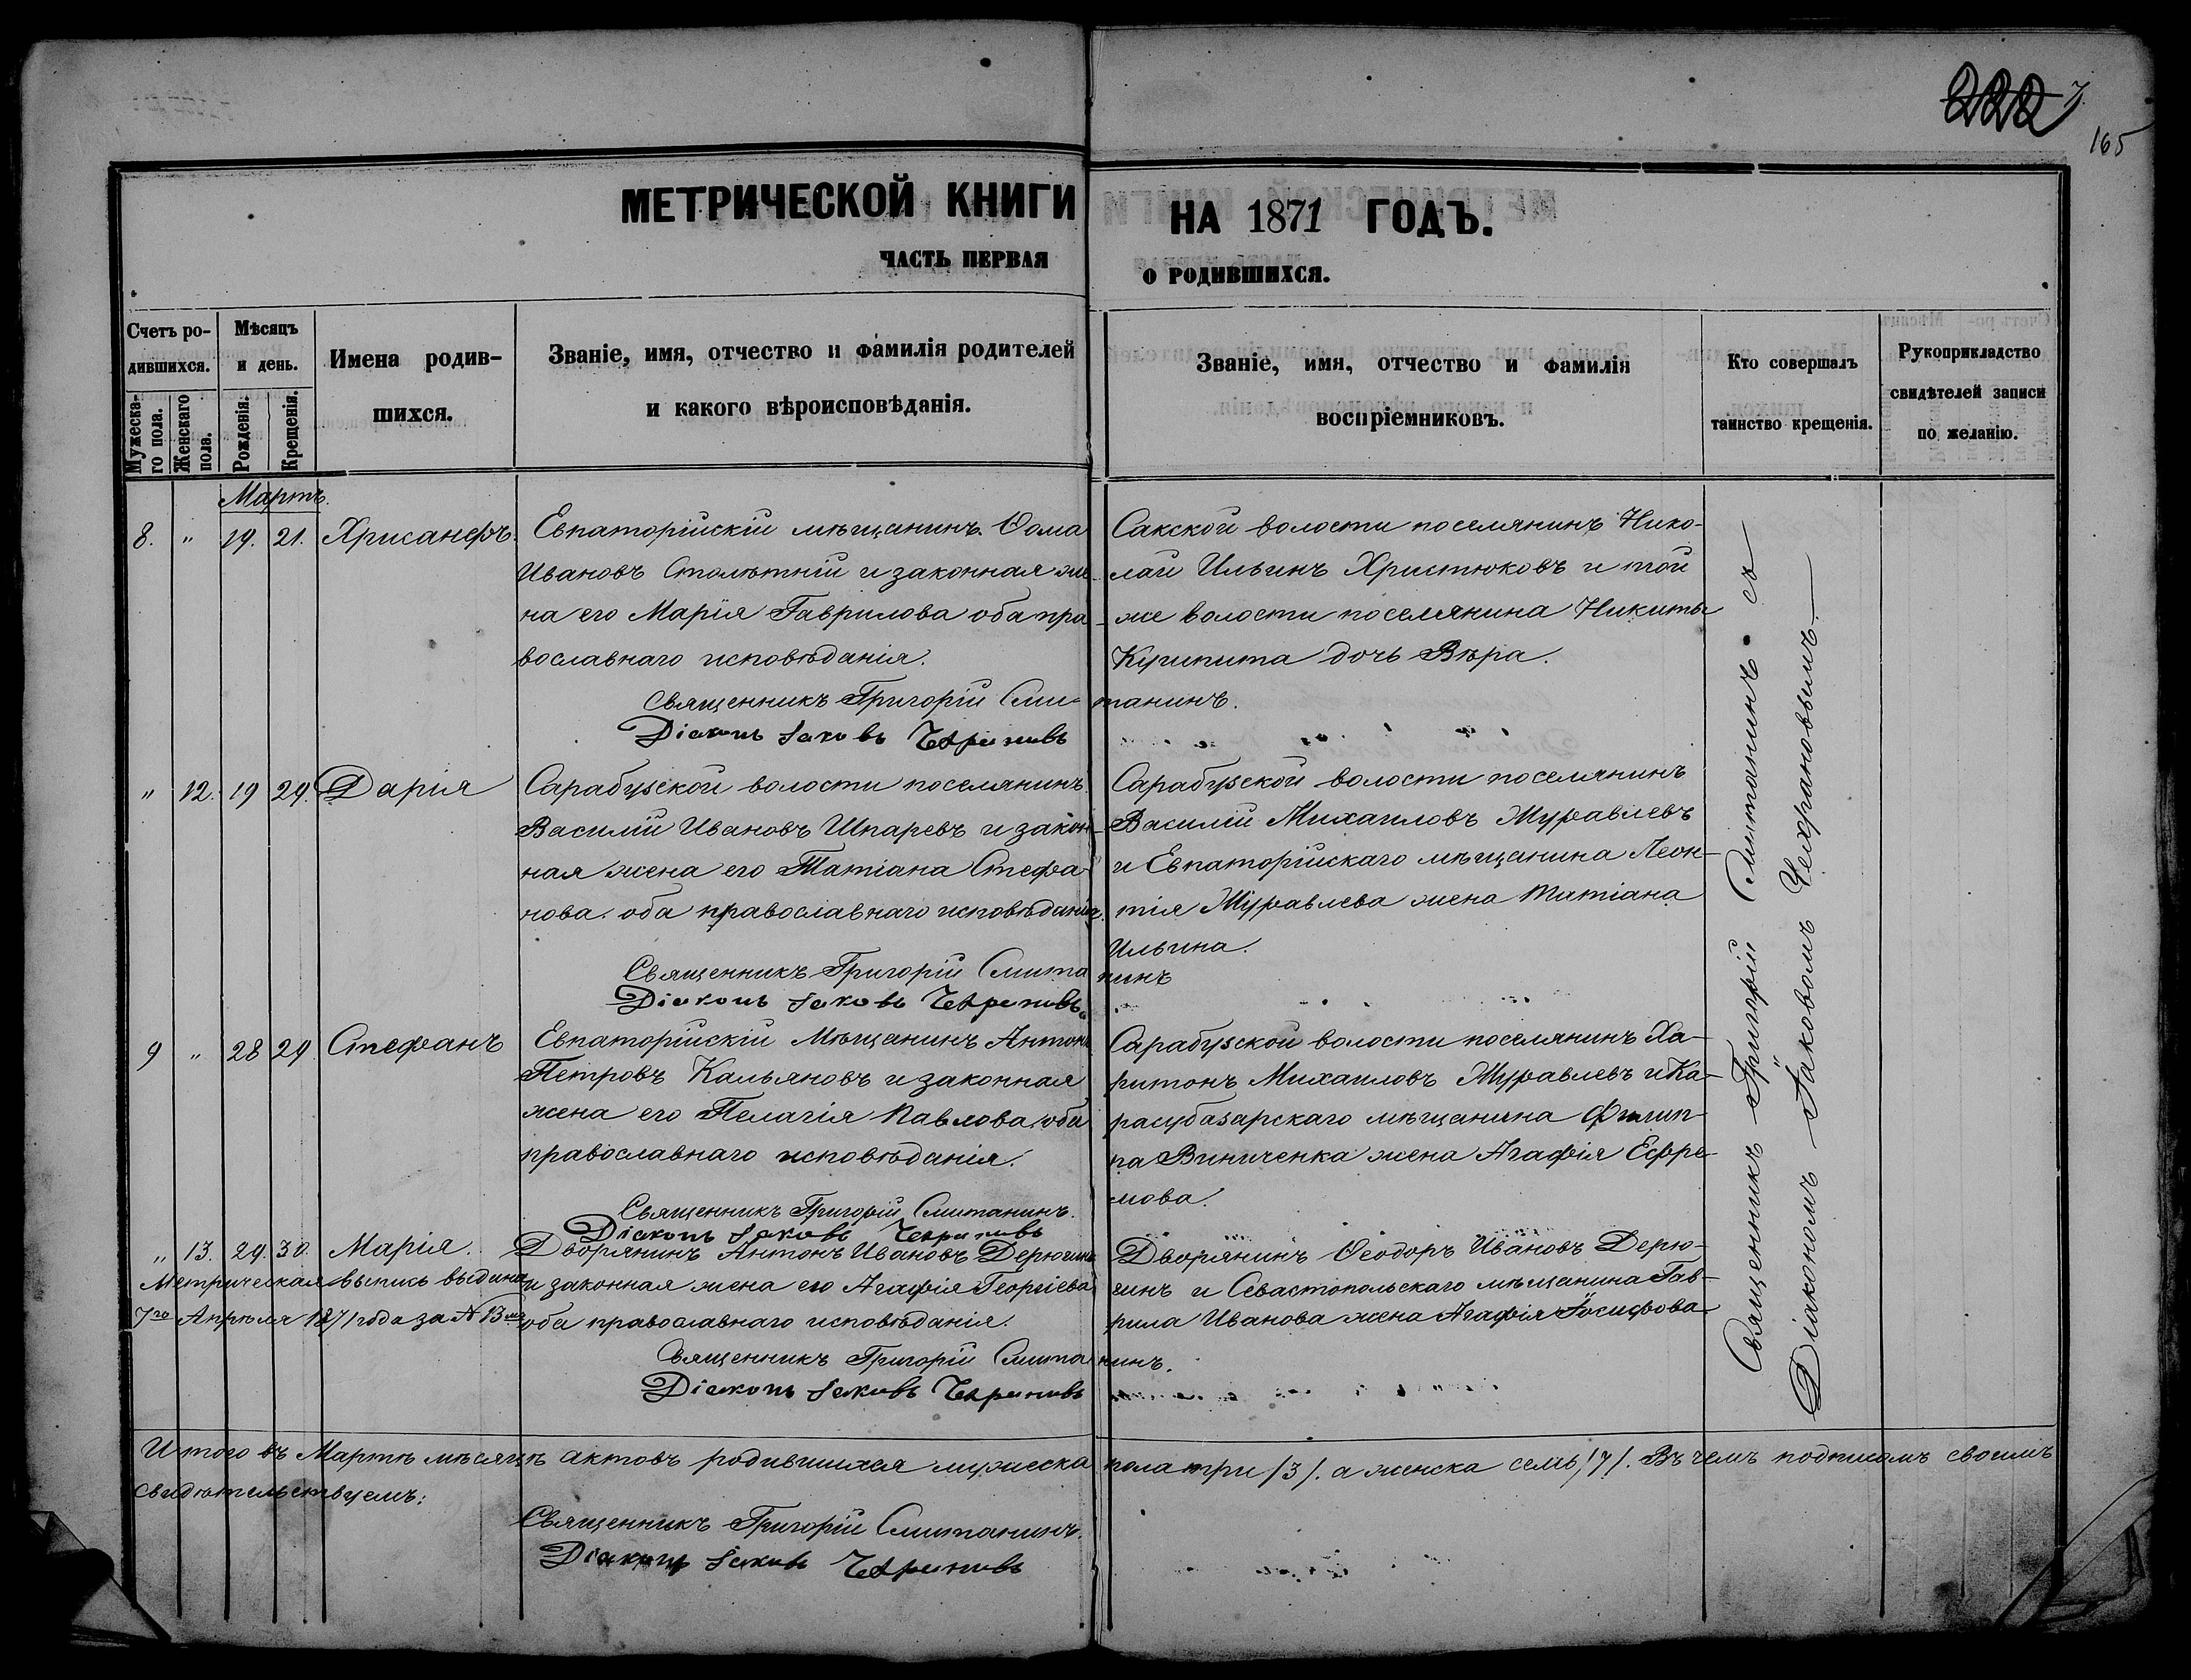 222 7
165
МЕТРИЧЕСКОЙ КНИГИ НА 1871 ГОДЪ.
ЧАСТЬ ПЕРВАЯ О РОДИВШИХСЯ.
Счетъ ро-
дившихся.
Мужеска-
го пола.
Женскаго
пола.
Мѣсяцъ
и день.
Рожденія.
Крещенія.
Имена родив-
шихся.
Званіе, имя, отчество и фамилія родителей
и какого вѣроисповѣданія.
Званіе, имя, отчество и фамилія
воспріемниковъ.
Кто совершалъ
таинство крещенія.
Рукоприкладство
свидѣтелей записи
по желанію.
Мартъ.
8. " 19. 21. Хрисанфъ.
Евпаторійскій мѣщанинъ Ѳома
Ивановъ Столѣтній и законная же-
на его Марія Гаврилова оба пра-
вославнаго исповѣданія.
Сакской волости поселянинъ Нико-
лай Ильинъ Христюковъ и той
же волости поселянина Никиты
дочь Вѣра.
Священникъ Григорій Смитанинъ.
Діаконъ Іаковъ Чехрановъ
" 12. 19 29. Дарія
Сарабузской волости поселянинъ
Василій Ивановъ Шпаревъ и закон-
ная жена его Татіана Стефа-
нова оба православнаго исповѣданія.
Сарабузской волости поселянинъ
Василій Михаиловъ Журавлевъ
и Евпаторійскаго мѣщанина Леон-
тія Журавлева жена Татіана
Ильина.
Священникъ Григорій Смитанинъ
Діаконъ Іаковъ Чехрановъ
9 " 28 29. Стефанъ
Евпаторійскій Мѣщанинъ Антонъ
Петровъ Кальяновъ и законная
жена его Пелагія Павлова, оба
православнаго исповѣданія.
Сарабузской волости поселянинъ Ха-
ритонъ Михаиловъ Журавлевъ и Ка-
расубазарскаго мѣщанина Филип-
па Виниченка жена Агафія Ефре-
мова.
Священникъ Григорій Смитанинъ.
Діаконъ Іаковъ Чехрановъ
" 13. 29. 30. Марія.
Метрическая выпись выдана
7го Апрѣля 1871 года за № 13мъ
Дворянинъ Антонъ Ивановъ Дерюгинъ
и законная жена его Агафія Георгіева
оба православнаго исповѣданія.
Дворянинъ Ѳеодоръ Ивановъ Дерю-
гинъ и Севастопольскаго мѣщанина Гав-
рила Иванова жена Агафія Іосифова
Священникъ Григорій Смитанинъ.
Діаконъ Іаковъ Чехрановъ
Священникъ Григорій Смитанинъ съ
Діакономъ Іаковомъ Чехрановымъ
Итого въ Мартѣ мѣсяцѣ актовъ родившихся мужеска пола три /3/. а женска семь /7/. Въ чемъ подписомъ своимъ
свидѣтельствуемъ:
Священникъ Григорій Смитанинъ.
Діаконъ Іаковъ Чехрановъ